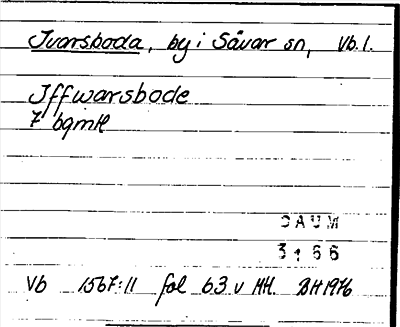 Ivarsboda, by i Sävar sn, Vb.l.
Iffwarsbode
7 bgmH
DAUM
3166
Vb 1567:11 fol 63 v HH. BH 1976